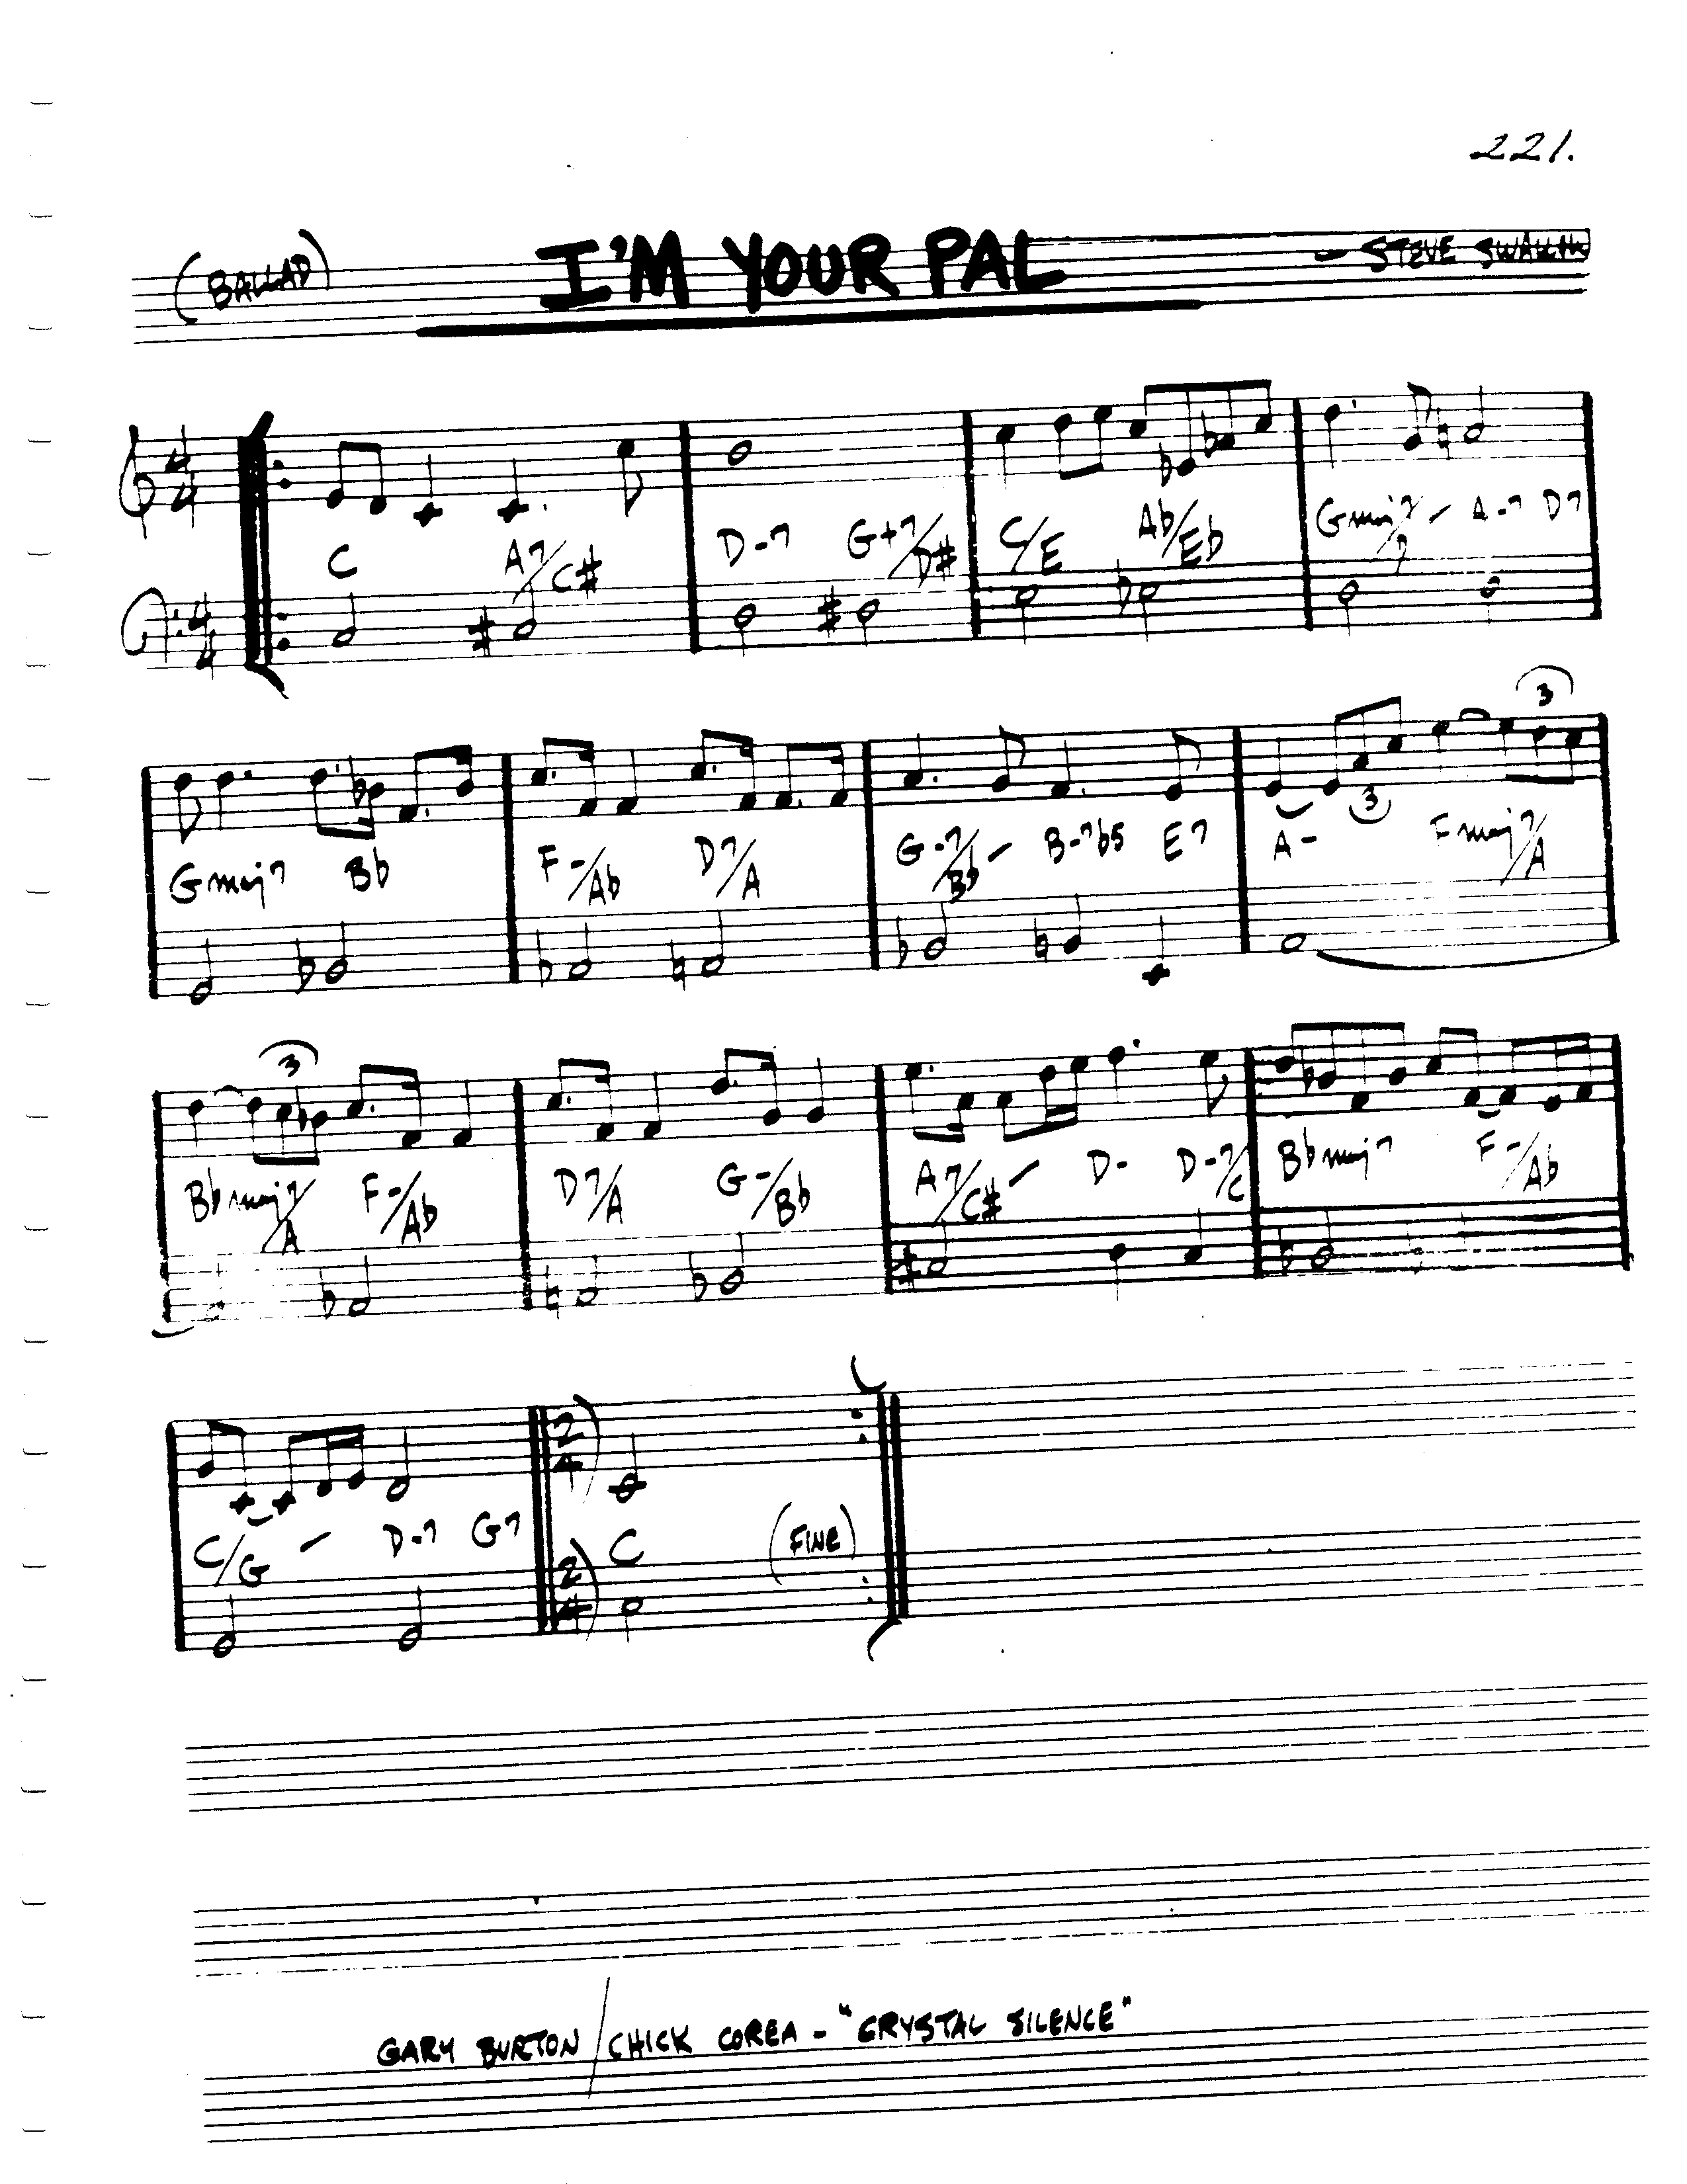 221.
(BALLAD) I'M YOUR PAL - STEVE SWALLOW
4 4
C A7/C# D-7 G+7/D# C/E Ab/Eb Gmaj7/D - A-7 D7
4 4
3
3
Gmaj7 Bb F-/Ab D7/A G-7/Bb - B-7b5 E7 A- Fmaj7/A
3
Bbmaj7/A F-/Ab D7/A G-/Bb A7/C# - D- D-7/C Bbmaj7 F-/Ab
2 4)
C/G - D-7 G7 C (FINE)
2 4)
GARY BURTON / CHICK COREA - "CRYSTAL SILENCE"